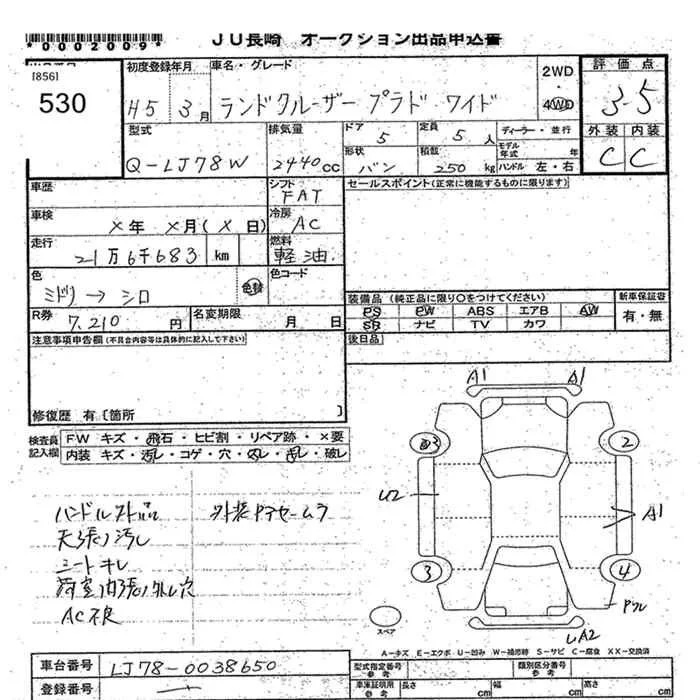 *0002009*
JU長崎 オークション出品申込書
[856]
530
初度登録年月
H5 3月
車名・グレード
ランドクルーザー プラド ワイド
2WD
・
4WD
評価点
3.5
外装 内装
C C
型式
Q-LJ78W
排気量
2440cc
ドア
5
定員
5人
形状
バン
積載
250kg
ディーラー・並行
モデル年式 年
ハンドル 左・右
車歴
シフト
FAT
セールスポイント(正常に機能するものに限ります)
車検
×年 ×月(×日)
冷房
AC
走行
21万6千683 km
燃料
軽油
色
ミドリ→シロ
色替
色コード
装備品(純正品に限り○をつけてください)
PS PW ABS エアB AW
SR ナビ TV カワ
新車保証書
有・無
R券
7,210円
名変期限
月 日
注意事項申告欄(不具合内容等は具体的に記入して下さい)
後日品
修復歴 有〔箇所 〕
検査員記入欄
FW キズ・飛石・ヒビ割・リペア跡・×要
内装 キズ・汚レ・コゲ・穴・破レ
天張り汚レ
シートキレ
AC不良
A1 A1
3 2
U2
A1
3 4
スペア
A2
A-キズ E-エクボ U-凹み W-補修跡 S-サビ C-腐食 XX-交換済
車台番号
LJ78-0038650
型式指定番号
参考
類別区分番号
参考
登録番号
車庫証明用
参考
長さ cm
幅 cm
高さ cm